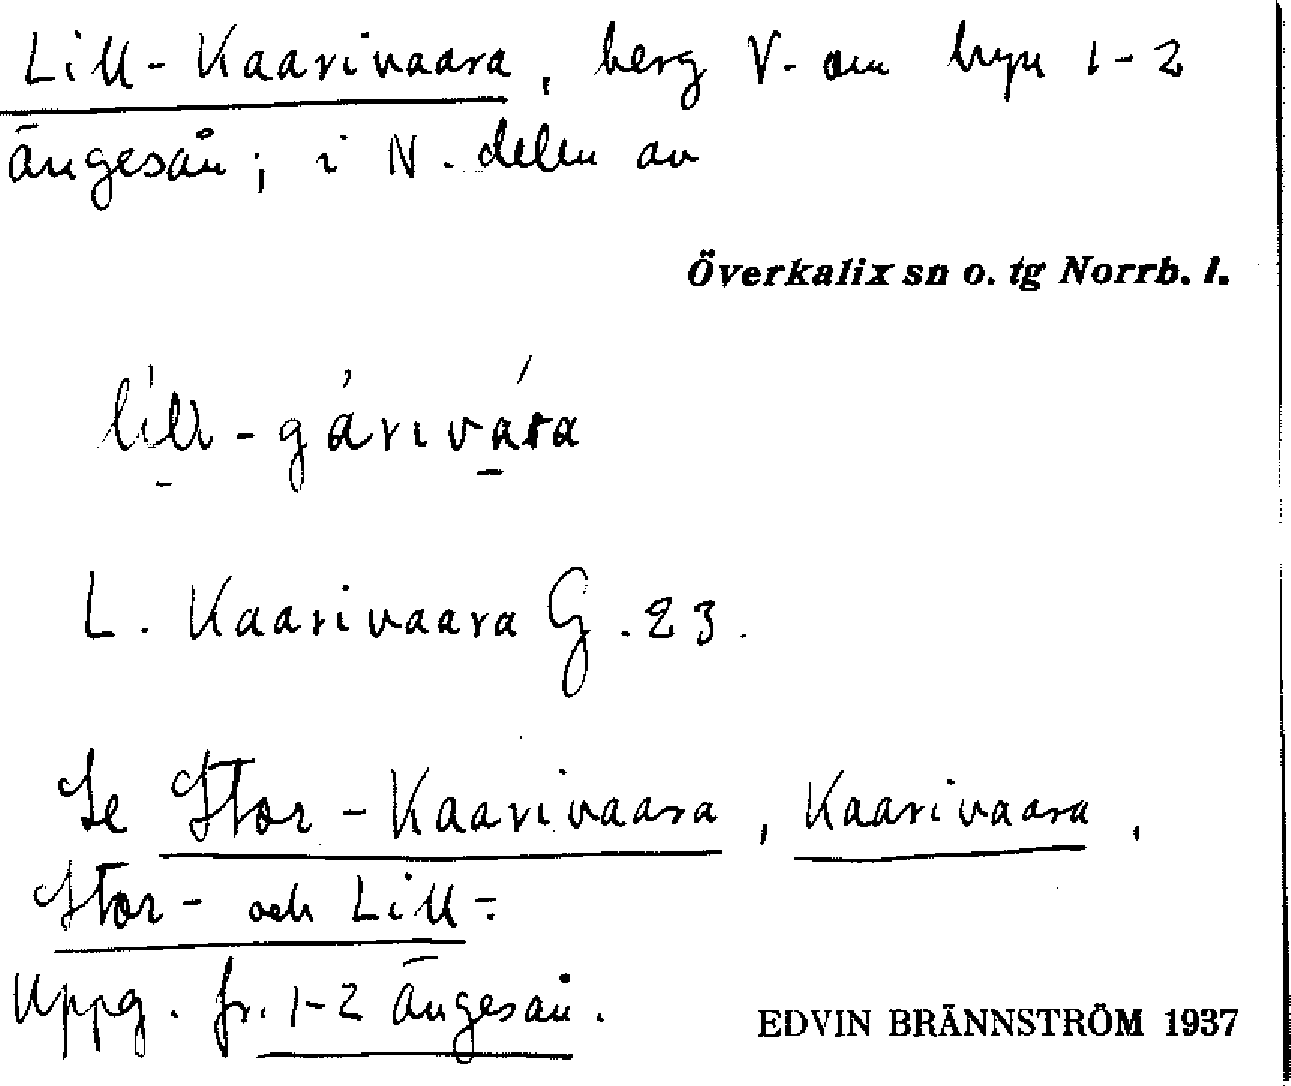 Lill-Kaarivaara, berg V. om byn 1-2
Ängesån; i N. delen av
Överkalix sn o. tg Norrb. l.
lill-gárivára
L. Kaarivaara G. 23.
Se Stor-Kaarivaara, Kaarivaara,
Stor- och Lill-.
Uppg. fr. 1-2 Ängesån.
EDVIN BRÄNNSTRÖM 1937